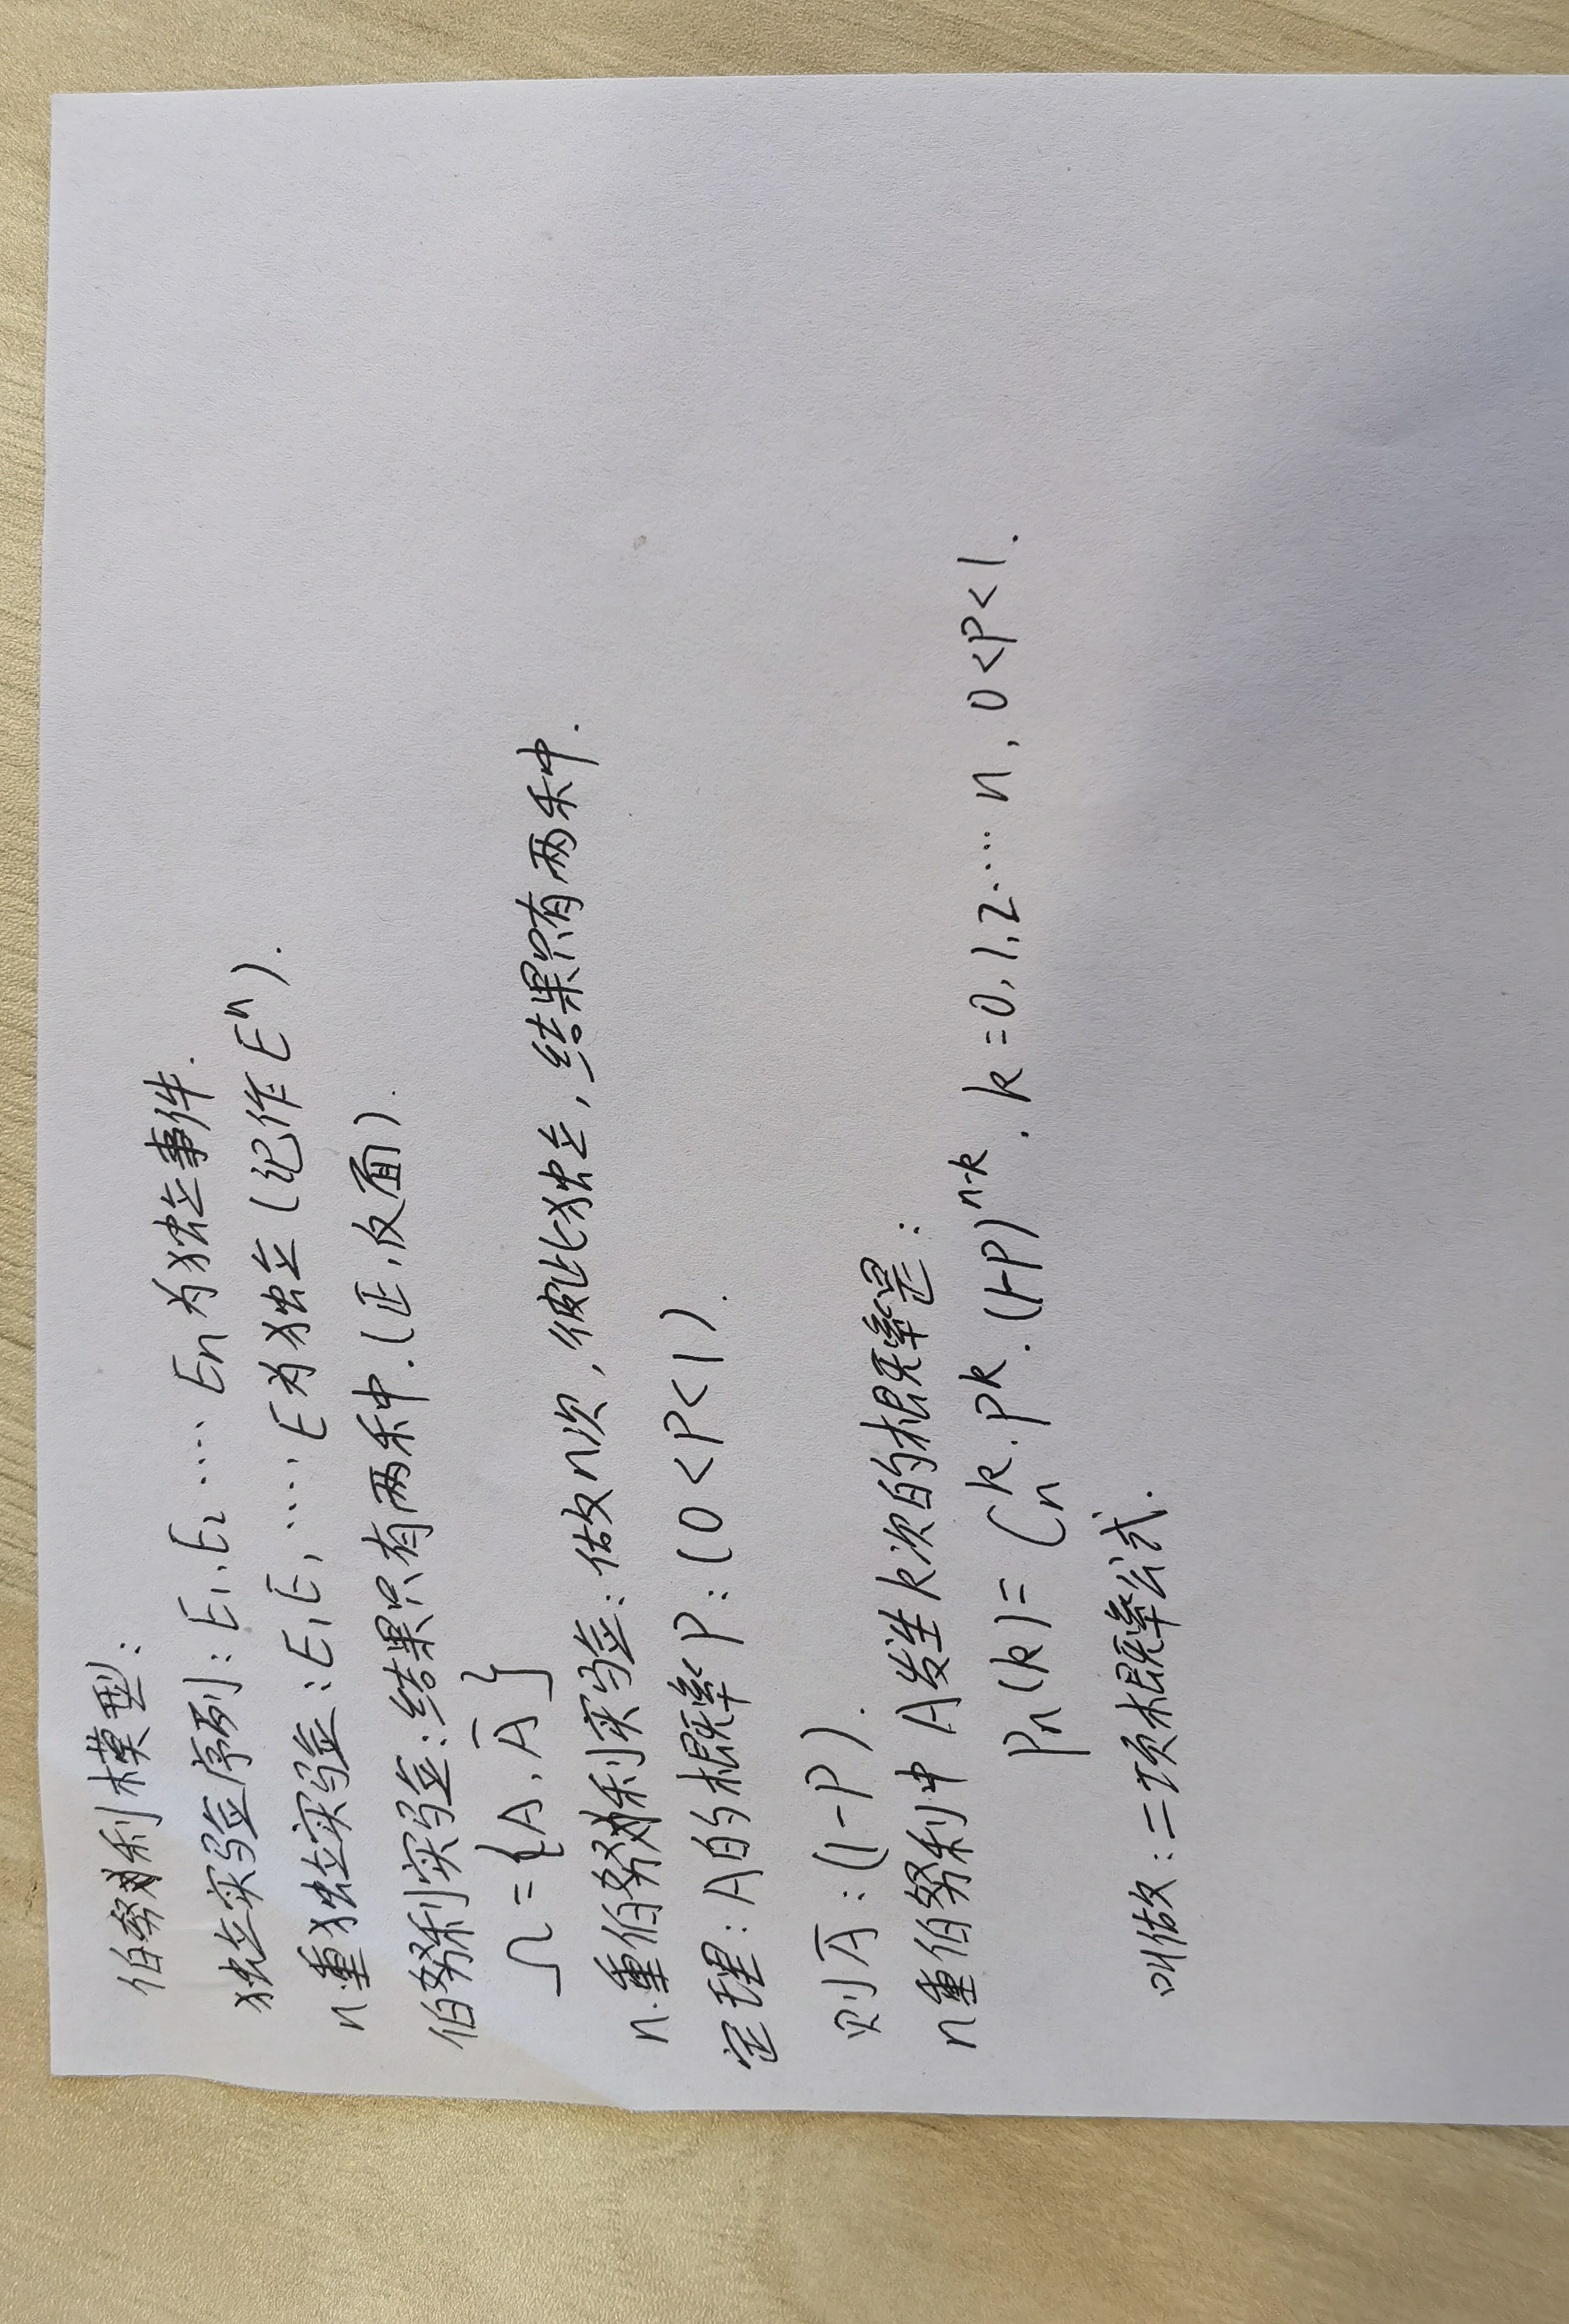 伯努利模型:
独立实验序列: E₁, E₂ ···· Eₙ 为独立事件.
n重独立实验: E, E, ···· E 为独立 (纪作 Eⁿ).
伯努利实验: 结果只有两种. (正, 反面).
Ω = {A, Ā}
n重伯努利实验: 做n次, 彼此独立, 结果只有两种.
定理: A的概率 P: (0 < P < 1).
则 Ā: (1-P).
n重伯努利中 A发生k次的概率是:
Pₙ(k) = Cₙᵏ · Pᵏ · (1-P)ⁿ⁻ᵏ. k = 0, 1, 2 ···· n, 0 < P < 1.
叫做: 二项概率公式.